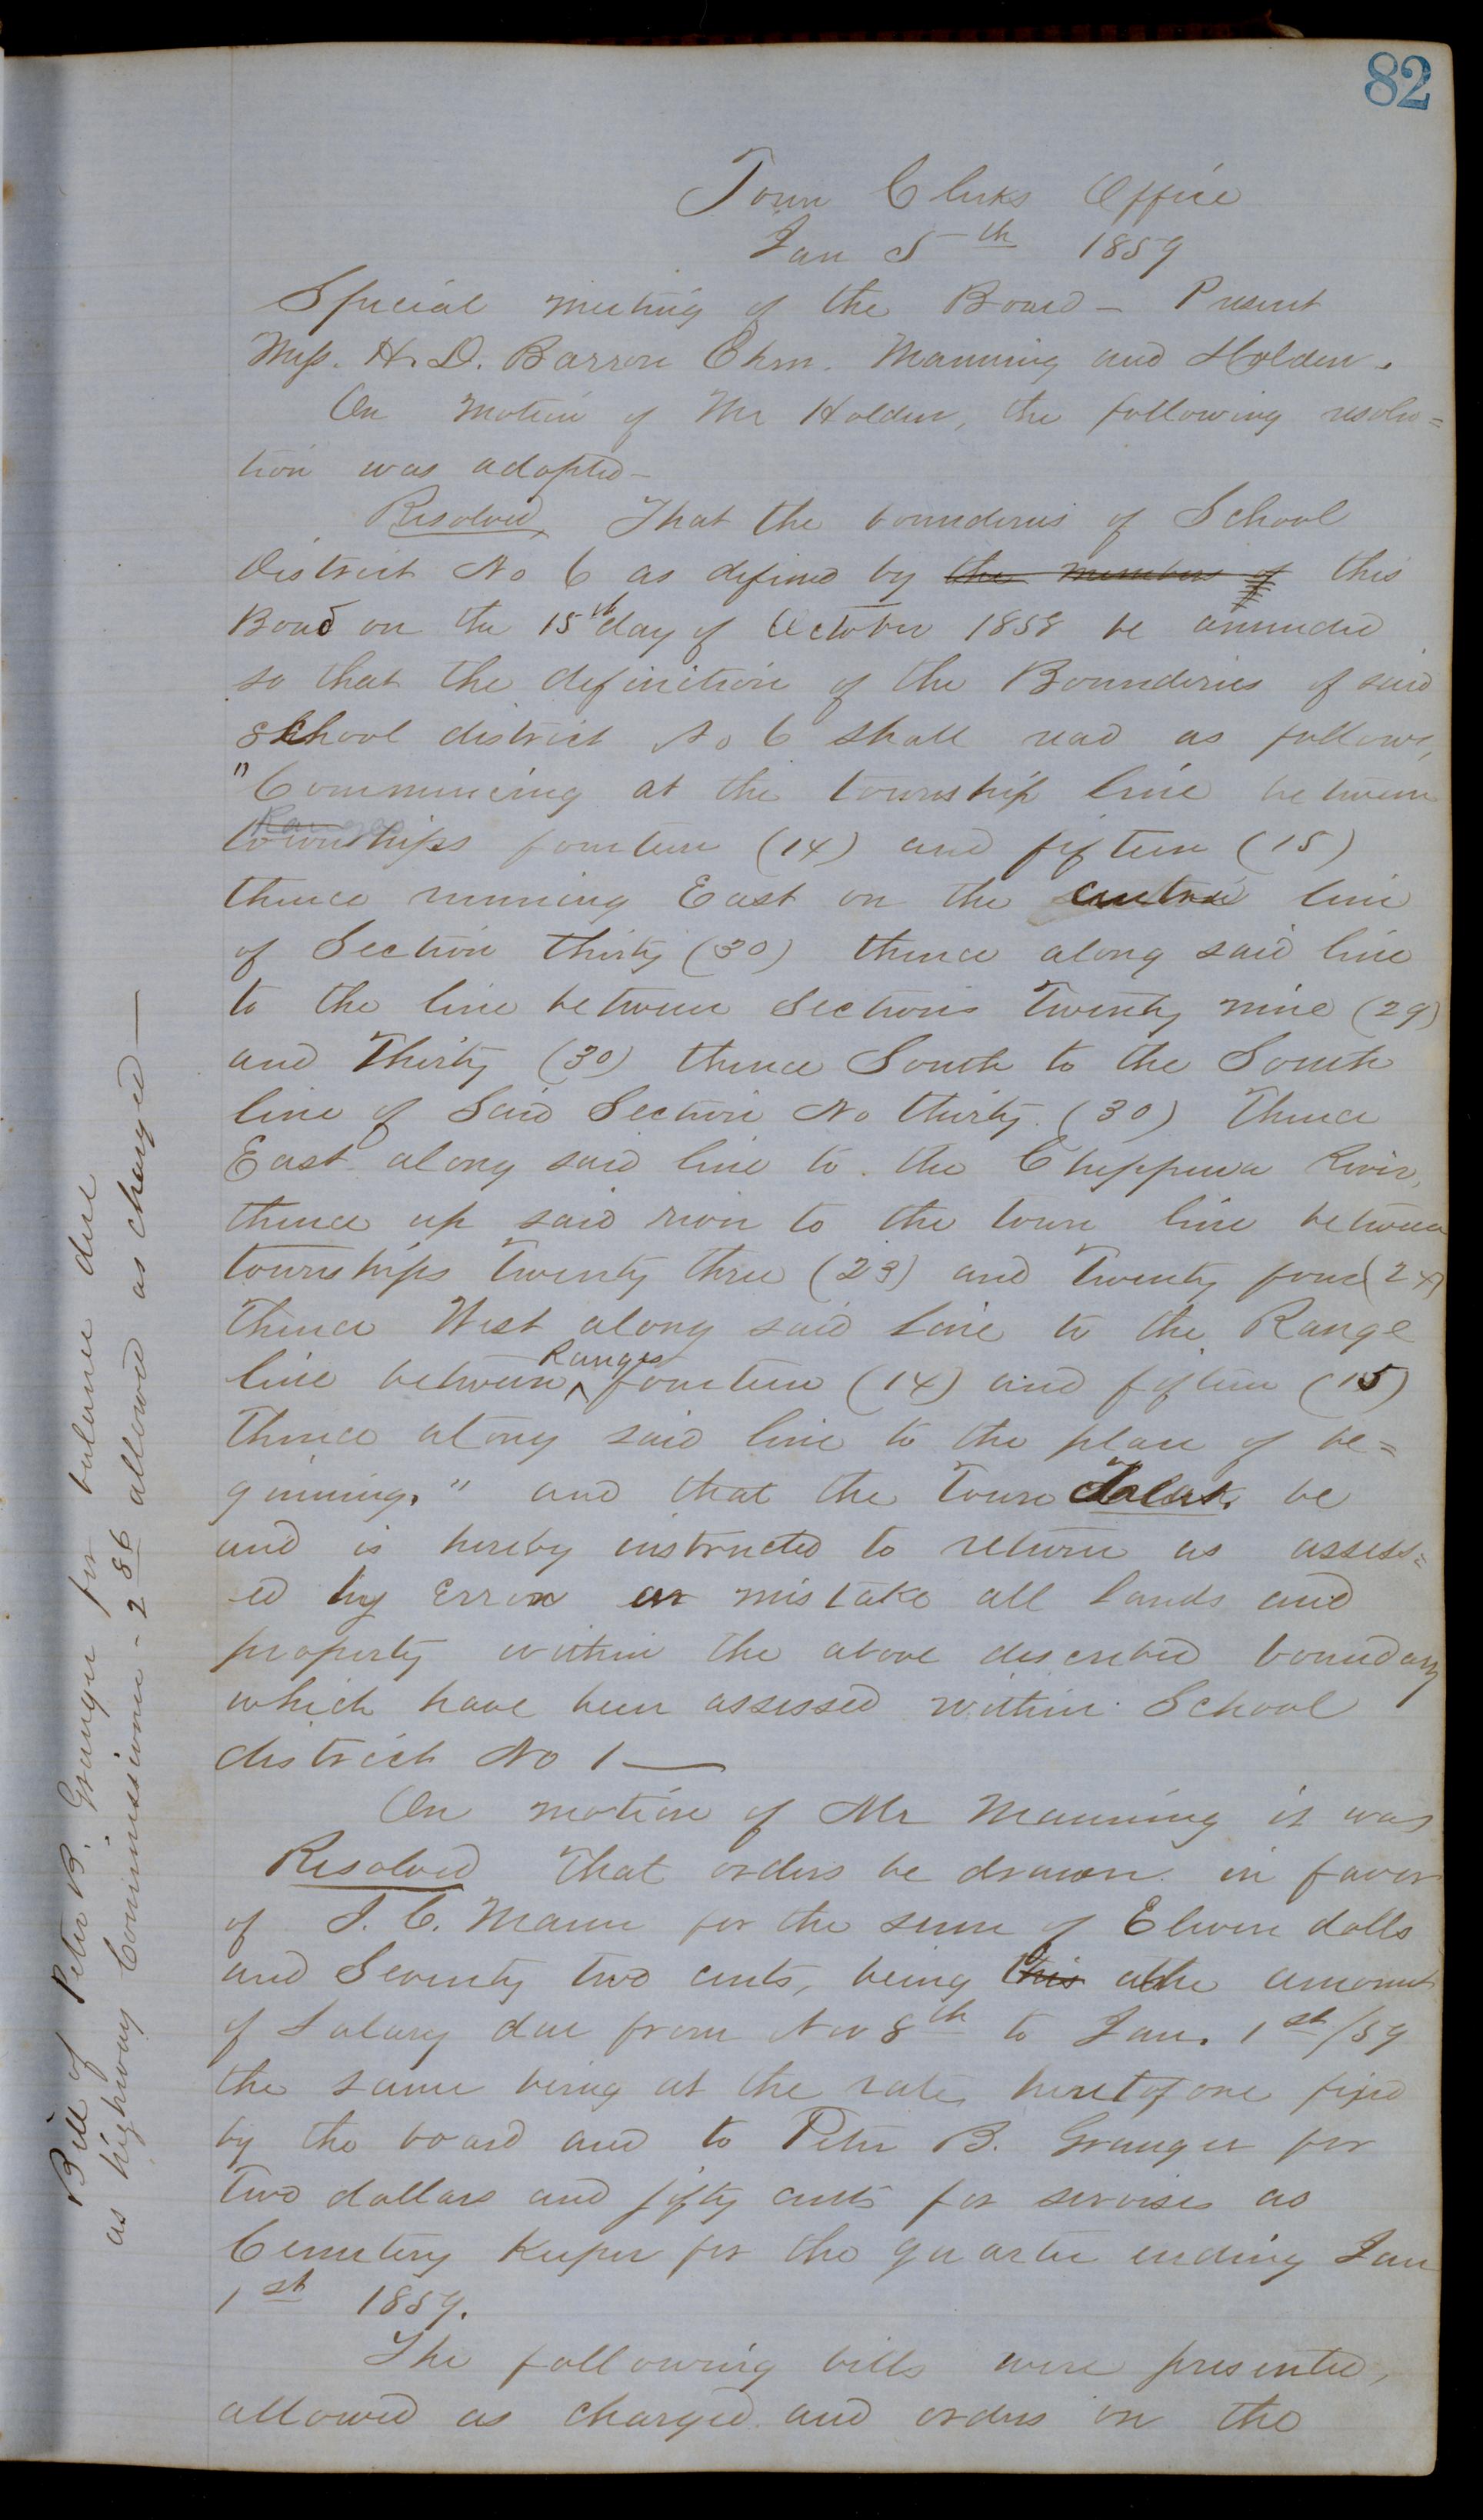 82
Town Clerks Office
Jan 5th 1859
Special meeting of the Board - Present
Mess. H. D. Barron Chm. Manning and Holden.
On motion of Mr Holden, the following resolu=
tion was adopted -
Resolved, That the bounderies of School
District No 6 as defined by the members of this
Board on the 15th day of October 1858 be amended
so that the definition of the Bounderies of said
school district No 6 shall read as follows,
"Commencing at the township line between
Ranges
townships fourteen (14) and fifteen (15)
thence running East on the centre line
of Section thirty (30) thence along said line
to the line between Sections Twenty nine (29)
and Thirty (30) thence South to the South
line of Said Section No thirty (30) Thence
East along said line to the Chippewa River,
thence up said river to the town line between
townships Twenty three (23) and Twenty four (24)
Thence West along said line to the Range
line between Ranges fourteen (14) and fifteen (15)
Thence along said line to the place of be=
ginning." and that the Town Clerk be
and is hereby instructed to return as assess=
ed by Error or mistake all lands and
property within the above described boundary
which have been assessed within School
district No 1 —
On motion of Mr Manning it was
Resolved That orders be drawn in favor
of J. C. Mann for the sum of Eleven dolls
and Seventy two cents, being this the amount
of Salary due from Nov 8th to Jan. 1st/59
the same being at the rate heretofore fixed
by the board and to Peter B. Granger for
Two dollars and fifty cents for servises as
Cemetery Keeper for the quarter ending Jan
1st 1859.
The following bills were presented,
allowed as charged and orders on the
Bill of Peter B. Granger for balance due
as highway Commissioner - 2 86 allowed as charged —